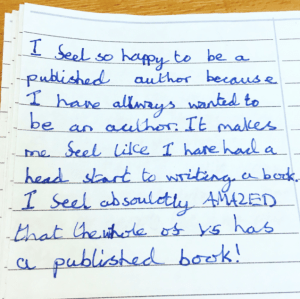 I feel so happy to be a
published author because
I have allways wanted to
be an author. It makes
me feel like I have had a
head start to writing a book.
I feel absoulotly AMAZED
that the whole of Y5 has
a published book!